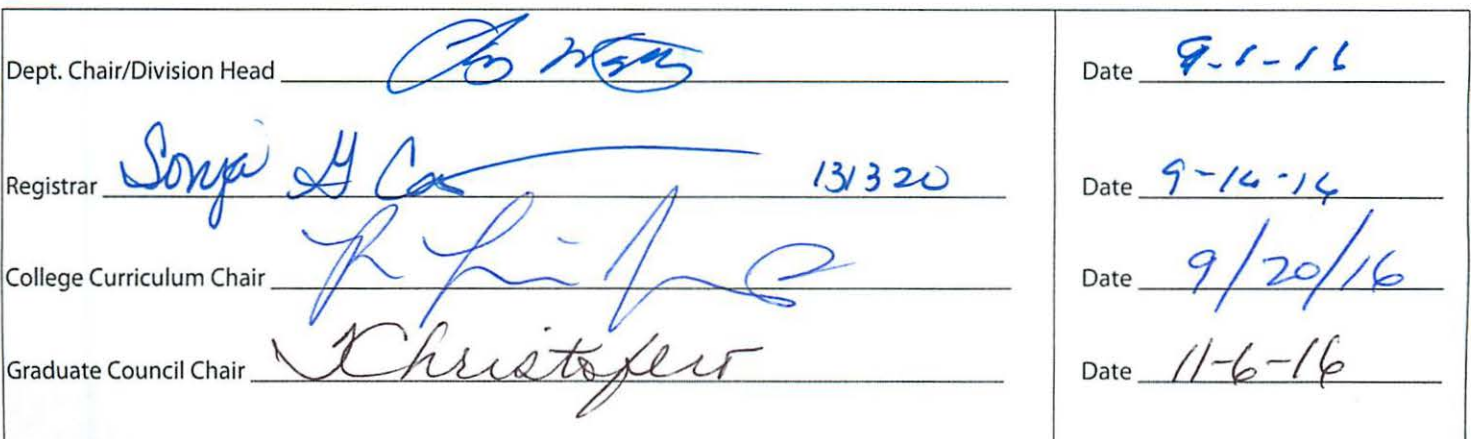 Dept. Chair/Division Head Date 9-1-16
Registrar Sonja G 131320 Date 9-14-16
College Curriculum Chair Date 9/20/16
Graduate Council Chair Date 11-6-16